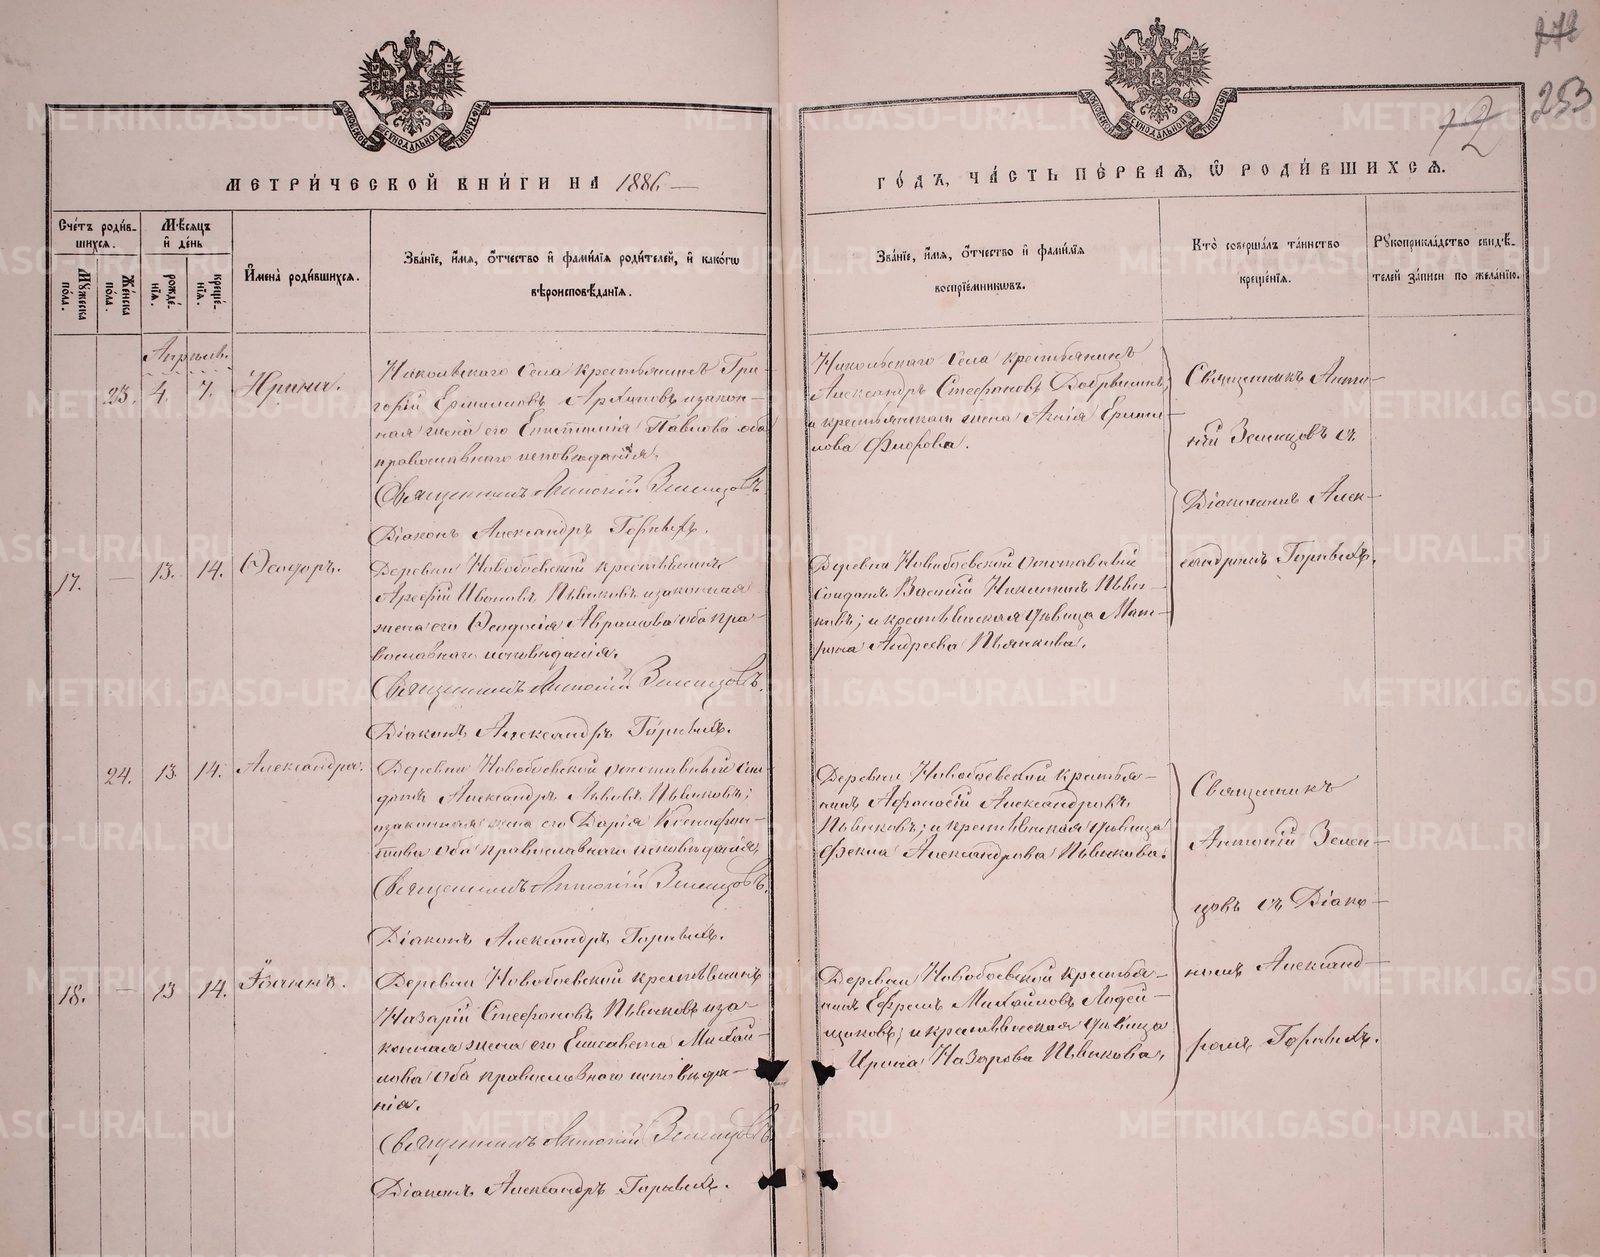 МЕТРИ́ЧЕСКОЙ КНИ́ГИ НА 1886
ГО́ДЪ, ЧА́СТЬ ПЕ́РВАѦ, Ѿ РОДИ́ВШИХСѦ.
272
253
72
Сче́тъ роди́в-
шихсѧ.
Мꙋжеска по́ла.
Же́нска по́ла.
Мѣ́сѧцъ и҆ де́нь
рожде́-нїѧ.
креще́-нїѧ.
И҆мена̀ роди́вшихсѧ.
Зва́нїе, и҆́мѧ, ѻ҆́тчество и҆ фами́лїѧ роди́телей, и҆ како́гѡ
вѣроисповѣ́данїѧ.
Зва́нїе, и҆́мѧ, ѻ҆́тчество и҆ фами́лїѧ
воспрїе́мникѡвъ.
Кто̀ соверша́лъ та́инство
креще́нїѧ.
Рꙋкоприкла́дство свидѣ́-
телей за́писи по жела́нїю.
Апрѣль
23. 4. 7. Ирина.
Никольскаго Села крестьянинъ Гри-
горій Ермиловъ Архиповъ и закон-
ная жена его Павлова оба
православнаго исповѣданія.
Священникъ Антоній Зеленцовъ
Діаконъ Александръ Горныхъ.
Никольскаго Села крестьянинъ
Александръ Стефановъ
и крестьянская жена
Священникъ Анто-
ній Зеленцовъ съ
Діакономъ Алек-
сандромъ Горныхъ.
17. — 13. 14. Ѳеодоръ.
Деревни Новобоевской крестьянинъ
Ивановъ Пьянковъ и законная
жена его Ѳеодосія Аврамова оба пра-
вославнаго исповѣданія.
Священникъ Антоній Зеленцовъ.
Діаконъ Александръ Горныхъ.
Деревни Новобоевской отставный
Солдатъ Василій Никитинъ Пьян-
ковъ; и крестьянская дѣвица Мат-
рона Андреева Пьянкова.
24. 13. 14. Александра.
Деревни Новобоевской отставный Сол-
датъ Александръ Львовъ Пьянковъ;
и законная жена его Дарія Ксенофон-
това оба православнаго исповѣданія.
Священникъ Антоній Зеленцовъ.
Діаконъ Александръ Горныхъ.
Деревни Новобоевской крестья-
нинъ Афонасій Александровъ
Пьянковъ; и крестьянская дѣвица
Фекла Александрова Пьянкова.
Священникъ
Антоній Зелен-
цовъ съ Діако-
номъ Александ-
ромъ Горныхъ.
18. — 13 14. Іоаннъ.
Деревни Новобоевской крестьянинъ
Назарій Стефановъ Пьянковъ и за-
конная жена его Елисавета Михай-
лова оба православнаго исповѣда-
нія.
Священникъ Антоній Зеленцовъ
Діаконъ Александръ Горныхъ.
Деревни Новобоевской крестья-
нинъ Ефремъ Михайловъ
и крестьянская дѣвица
Ирина Назарова Пьянкова.
METRIKI.GASO-URAL.RU